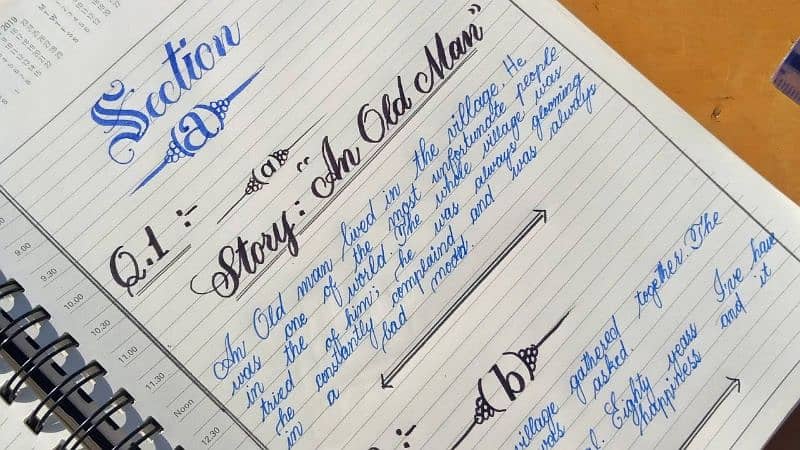 2019
Section
(a)
Q.1 :-
(a)
Story: "An Old Man"
An Old man lived in the village. He
was one of the most unfortunate people
in the world. The whole village was
tried of him; he was always glooming
he constantly complaind and was always
in a bad mood.
(b)
village gathered together. The
was asked.
Eighty years I've have
happiness and it
9.00
9.30
10.00
10.30
11.00
11.30
Noon
12.30